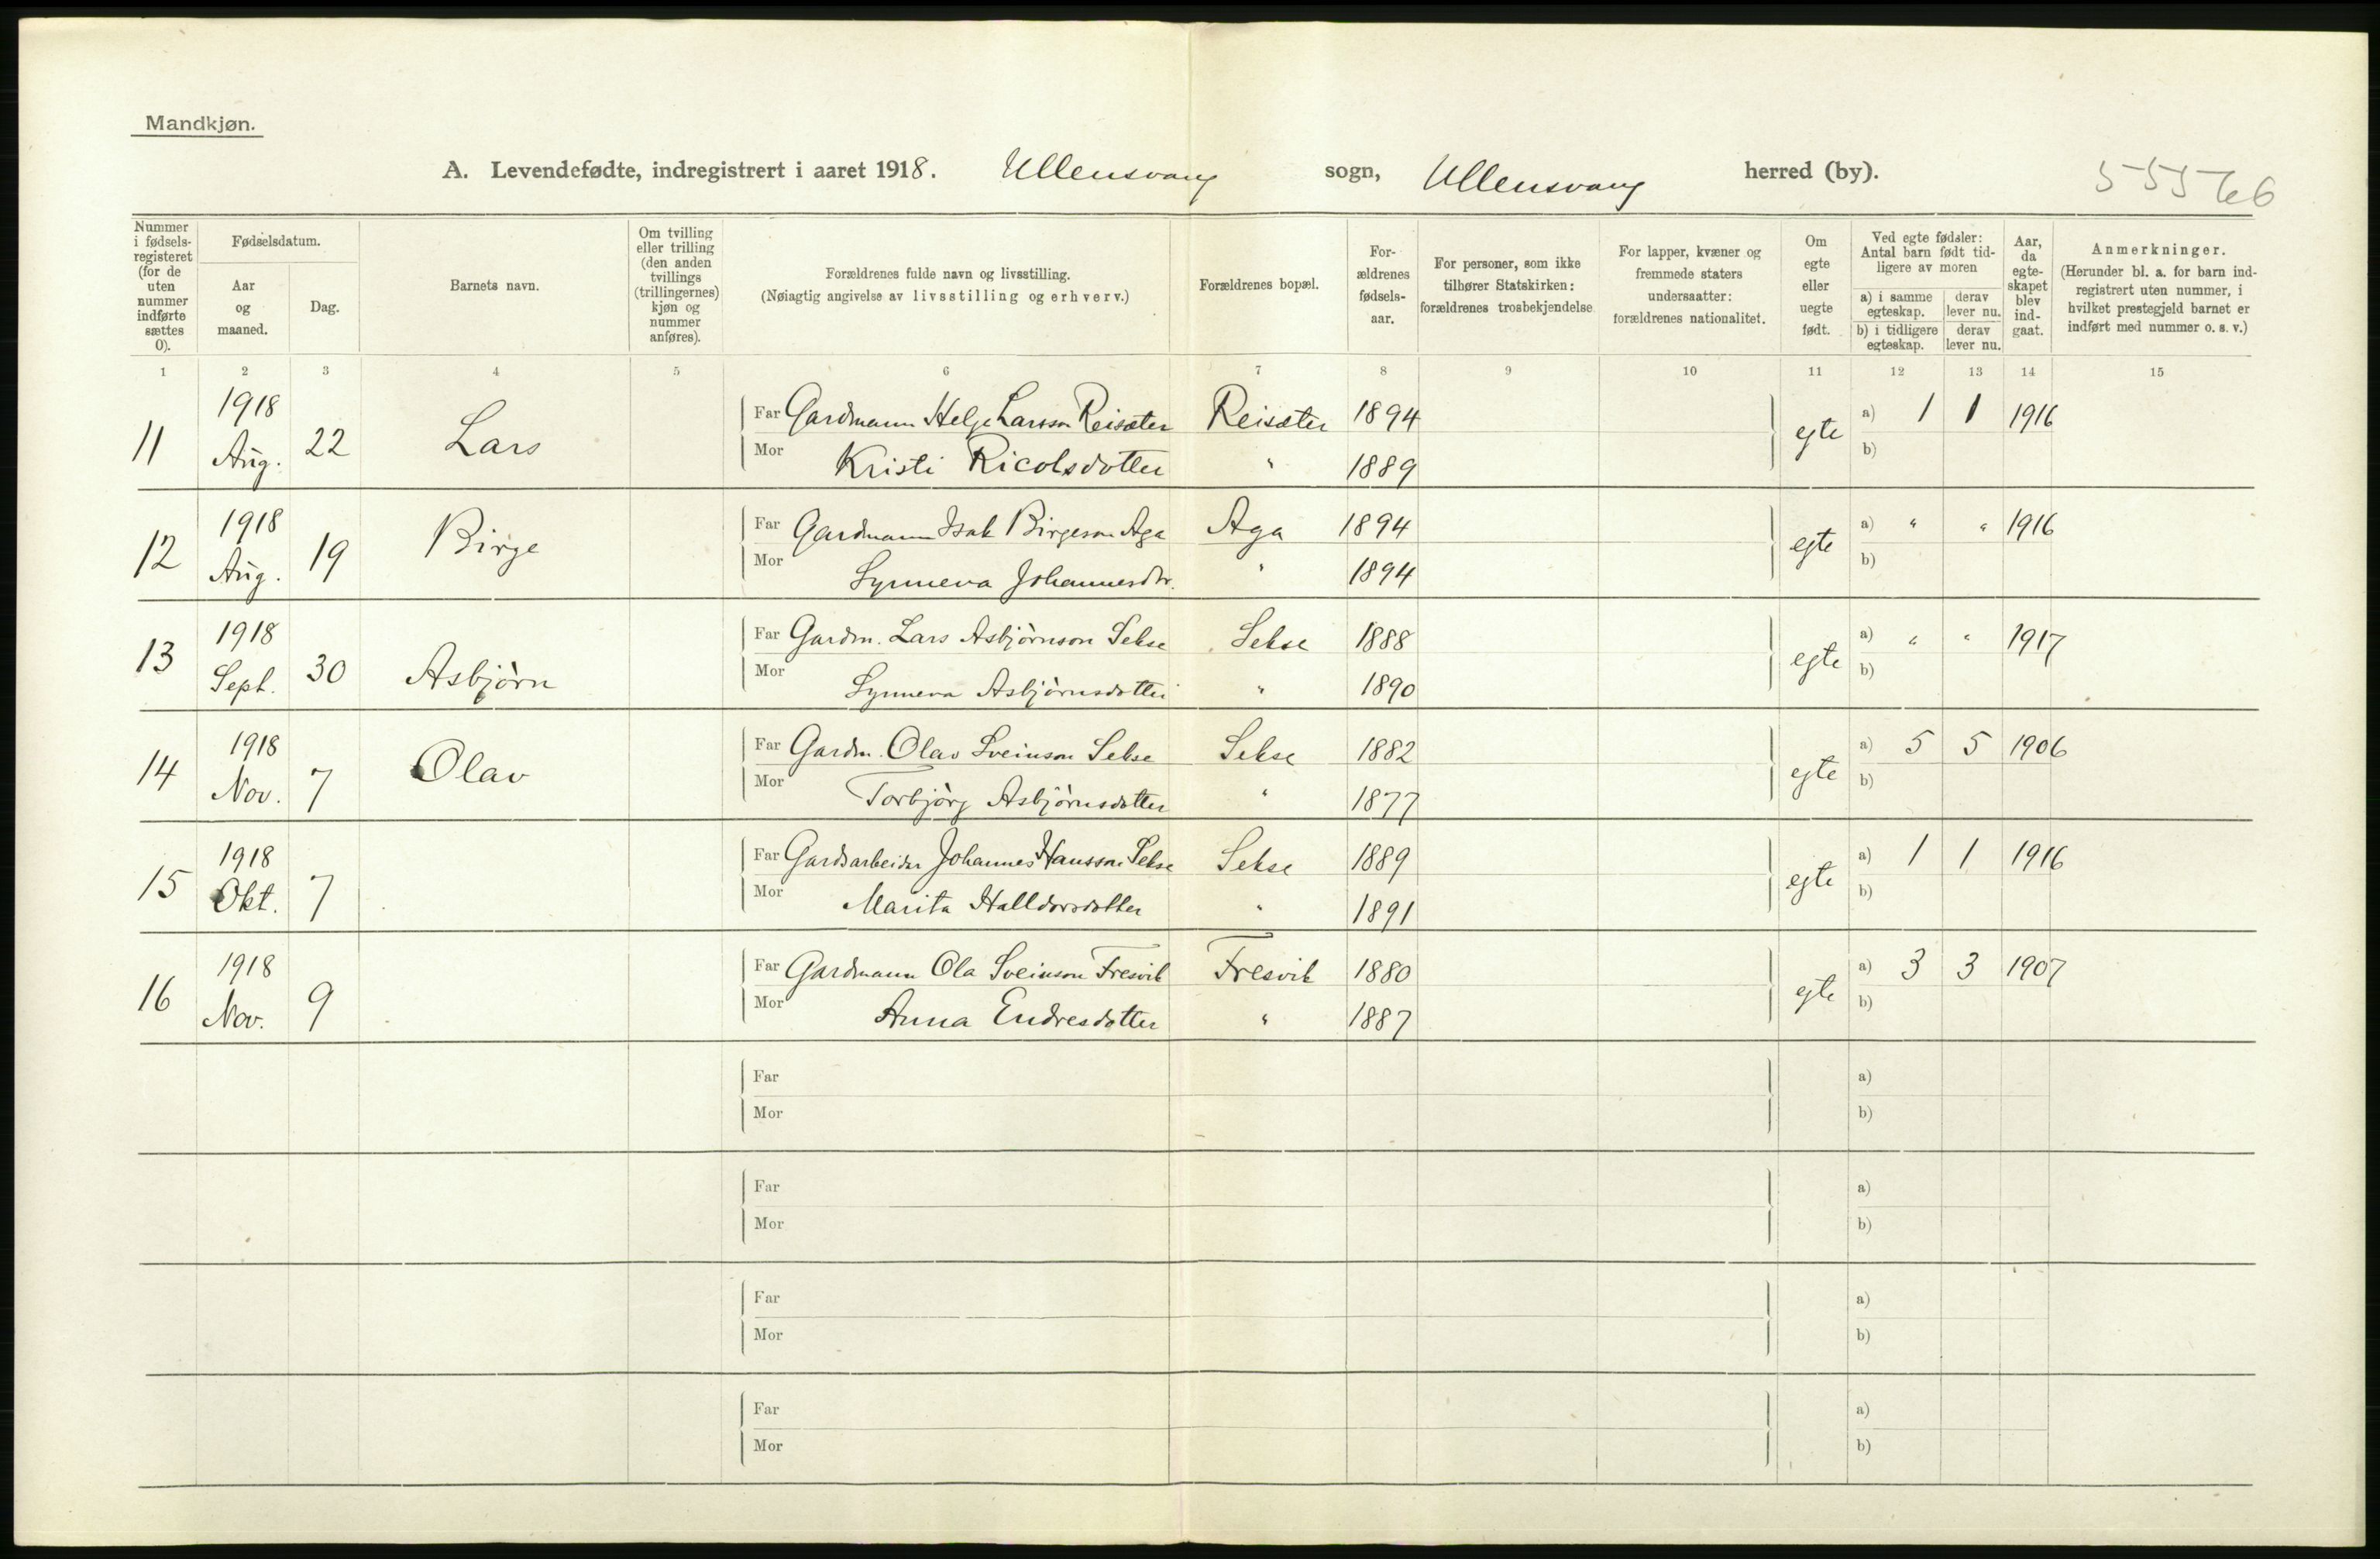 Mandkjøn.
A. Levendefødte, indregistrert i aaret 1918. Ullensvang sogn, Ullensvang herred (by).
Nummer i fødsels-registeret (for de uten nummer indførte sættes 0).
Fødselsdatum.
Aar og maaned.
Dag.
Barnets navn.
Om tvilling eller trilling (den anden tvillings (trillingernes) kjøn og nummer anføres).
Forældrenes fulde navn og livsstilling.
(Nøiagtig angivelse av livsstilling og erhverv.)
Forældrenes bopæl.
For-ældrenes fødsels-aar.
For personer, som ikke tilhører Statskirken: forældrenes trosbekjendelse
For lapper, kvæner og fremmede staters undersaatter: forældrenes nationalitet.
Om egte eller uegte født.
Ved egte fødsler: Antal barn født tid-ligere av moren
a) i samme egteskap. derav lever nu.
b) i tidligere egteskap. derav lever nu.
Aar, da egte-skapet blev ind-gaat.
Anmerkninger.
(Herunder bl. a. for barn ind-registrert uten nummer, i hvilket prestegjeld barnet er indført med nummer o. s. v.)
1 2 3 4 5 6 7 8 9 10 11 12 13 14 15
11 1918 Aug. 22 Lars Far Gardmann Helge Larsson Reisæter Reisæter 1894 egte a) 1 1 1916
Mor Kristi Ricolsdotter " 1889 b)
12 1918 Aug. 19 Birge Far Gardmann Isak Birgeson Aga Aga 1894 egte a) " " 1916
Mor Synneva Johannesdtr. " 1894 b)
13 1918 Sept. 30 Asbjörn Far Gardm. Lars Asbjörnson Sekse Sekse 1888 egte a) " " 1917
Mor Synneva Asbjörnsdotter " 1890 b)
14 1918 Nov. 7 Olav Far Gardm. Olav Sveinson Sekse Sekse 1882 egte a) 5 5 1906
Mor Torbjörg Asbjörnsdotter " 1877 b)
15 1918 Okt. 7 Far Gardsarbeidar Johannes Hansson Sekse Sekse 1889 egte a) 1 1 1916
Mor Marita Halldorsdotter " 1891 b)
16 1918 Nov. 9 Far Gardmann Ola Sveinson Fresvik Fresvik 1880 egte a) 3 3 1907
Mor Anna Endresdotter " 1887 b)
Far a)
Mor b)
Far a)
Mor b)
Far a)
Mor b)
Far a)
Mor b)